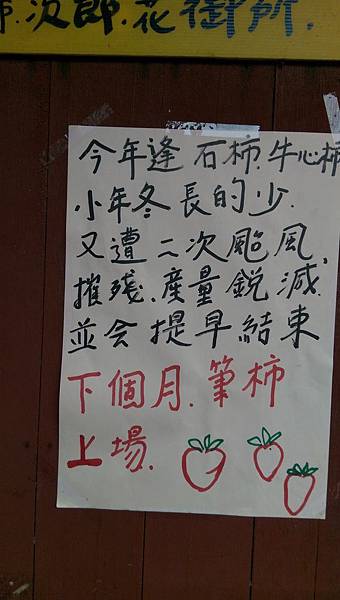 次郎.花御所.
今年逢石柿.牛心柿
小年冬長的少.
又遭二次颱風.
摧残.產量銳減.
並会提早結束
下個月.筆柿
上場.